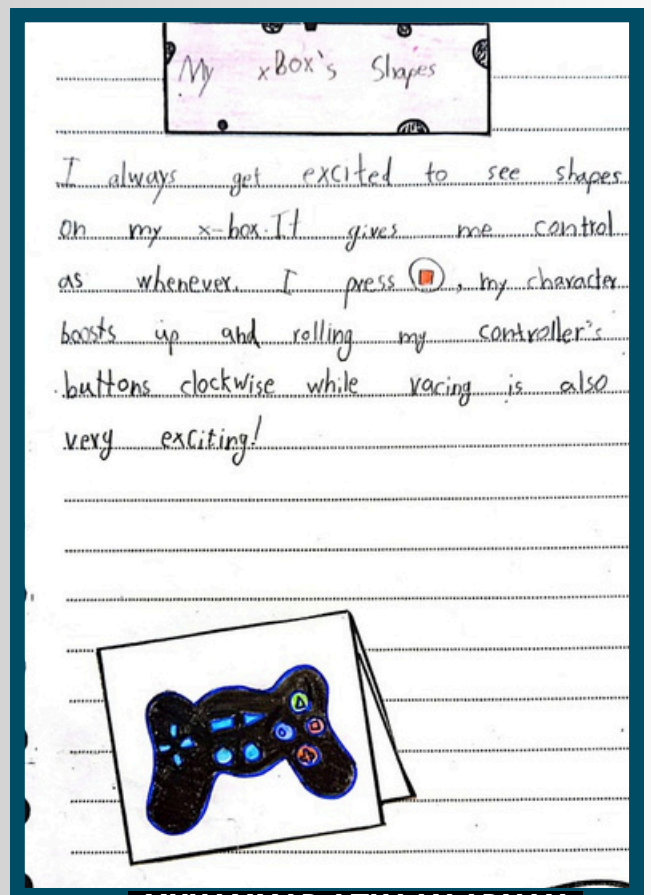 My xBox's Shapes
I always get excited to see shapes
on my x-box. It gives me control
as whenever. I press , my character
boosts up and rolling my controller's
buttons clockwise while racing is also
very exciting!